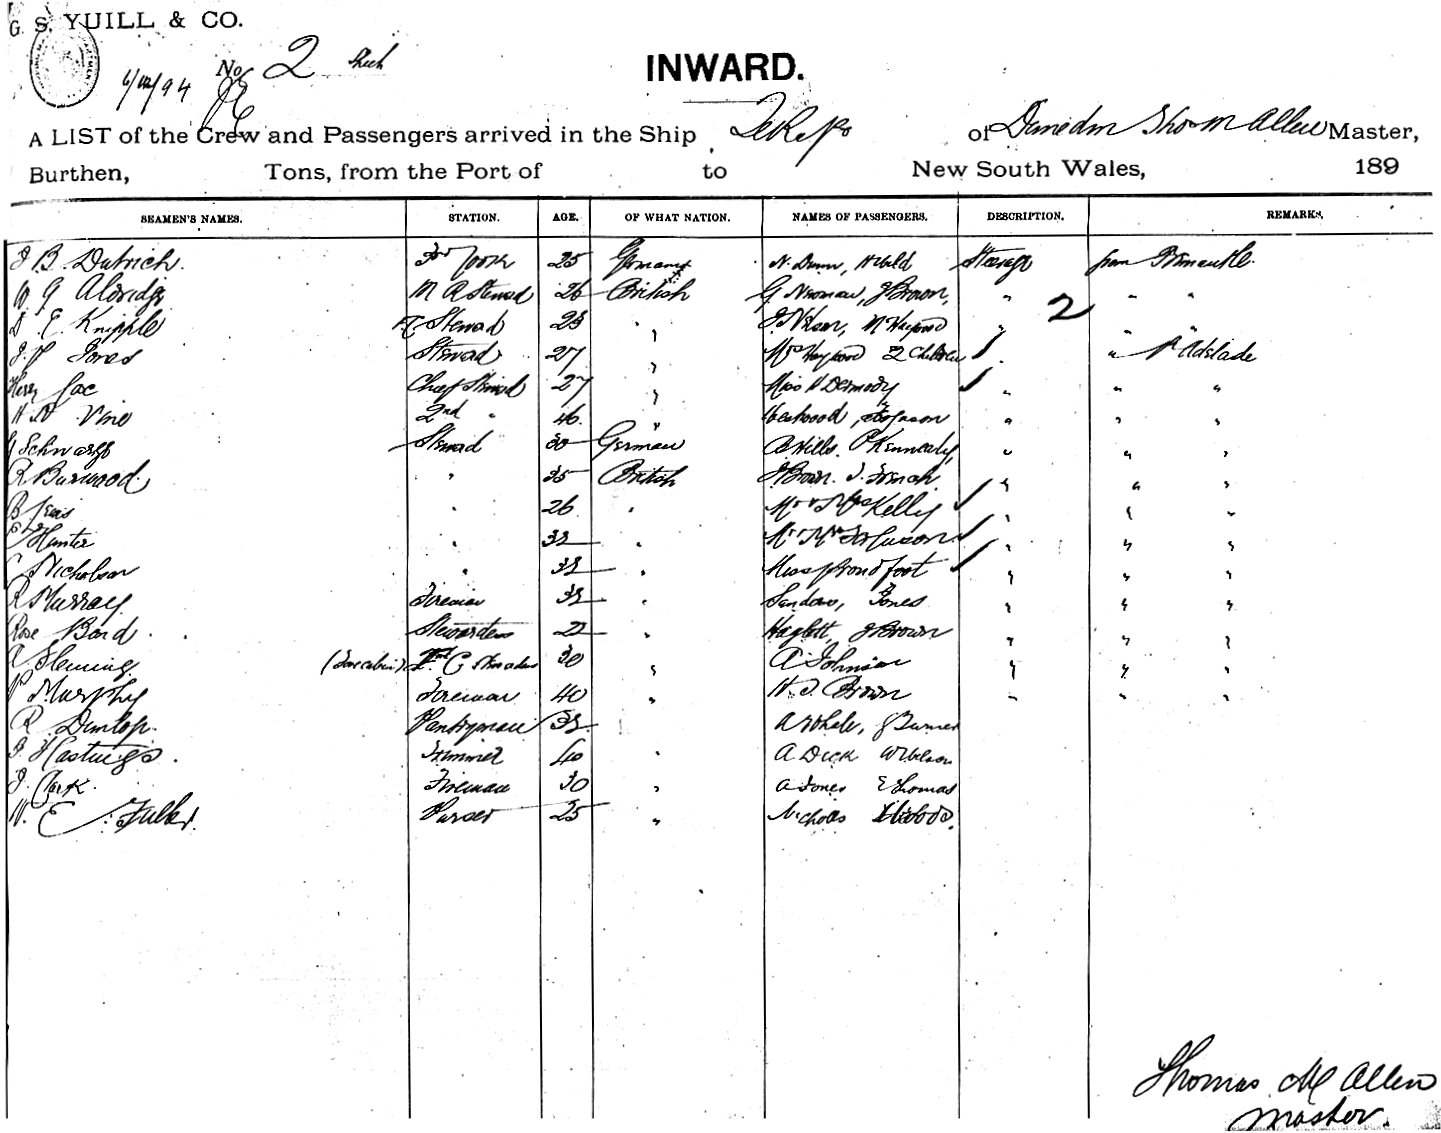 G. S. YUILL & CO.
No 2
6/12/94
INWARD.
A LIST of the Crew and Passengers arrived in the Ship Tekapo of Dunedin Thos M Allen Master,
Burthen, Tons, from the Port of to New South Wales, 189
SEAMEN'S NAMES. STATION. AGE. OF WHAT NATION. NAMES OF PASSENGERS. DESCRIPTION. REMARKS.
J B. Dutrich. 3rd Cook 25 Germany N. Dunn, Steerage from Fremantle.
W G Aldridge M R Steward 26 British G Newman, J Brown, " 2 " "
E. Knipple Steward 28 " J Nilson, M Haywood " " "
Jones Steward 27 " Mrs Haywood 2 Children " " Adelaide
Chief Steward 27 " Miss Dermody " " "
Vine 2nd " 46 " Heahwood, Ferguson " " "
Schwarz Steward 30 German A Hills. P Kennealy, " " "
R Burwood " 35 British J Brown. J. French " " "
B " 26 " Mr & Mrs Kelly " " "
Hunter " 32 " Mr & Mrs Ferguson " " "
Nicholson " " Miss Proudfoot " " "
R Murray Fireman " Jones " " "
Rose Bond Stewardess 22 " Haglett, J Brown " " "
Fleming (Forecabin) 30 " A Johnson " " "
P Murphy Fireman 40 " H. J Brown " " "
R. Dunlop. Pantryman A Whale, J Turner
Hastings. Trimmer 40 " A Dick W Wilson
J. Clark. Fireman 30 " A Jones E Thomas
W. E. Fuller. Purser 25 " Nicholas
Thomas M Allen
Master.